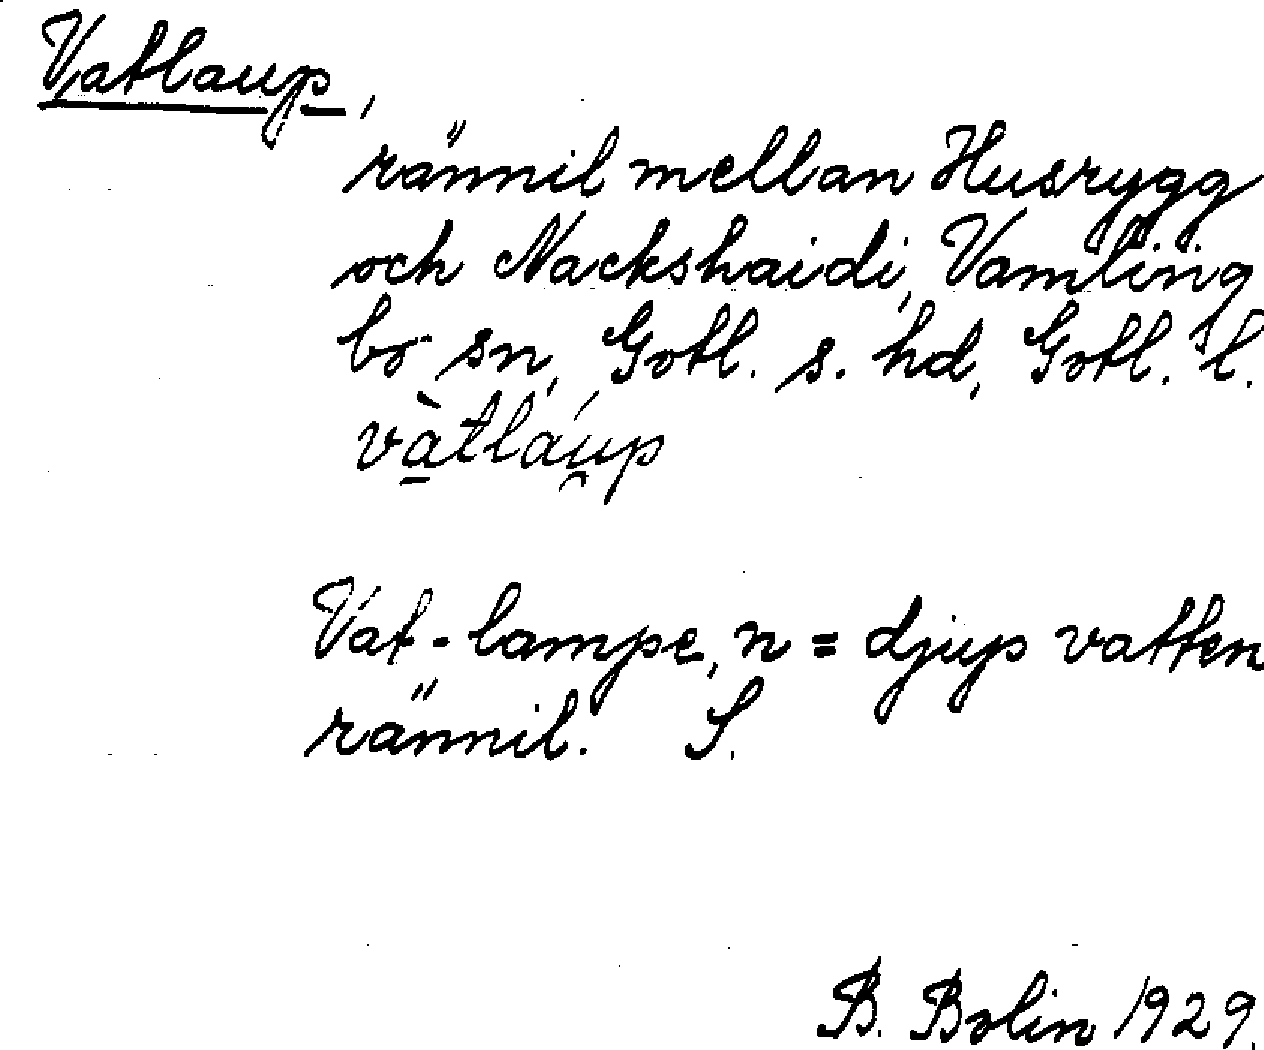 Vatlaup,
rännil mellan Husrygg
och Nackshaidi, Vamling
bo sn, Gotl. s. hd, Gotl. l.
và̱tláu̯p
Vat-laupe, n = djup vatten
rännil. S.
B. Bolin 1929.